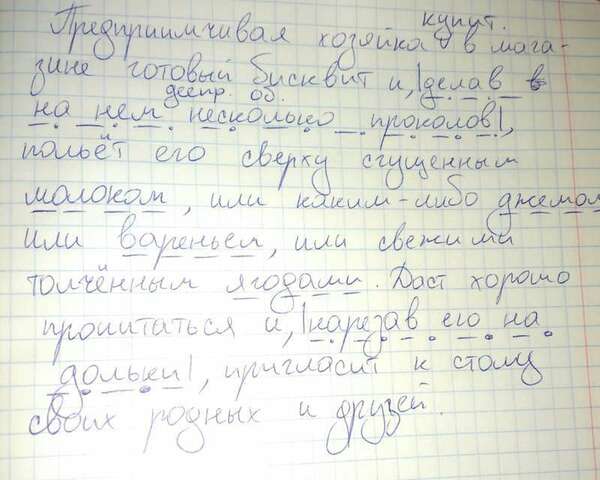 купит.
Предприимчивая хозяйка в мага-
зине готовый бисквит и, |делав в
деепр. об.
на нем несколько проколов|,
польёт его сверху сгущенным
молоком, или каким-либо джемом
или вареньем, или свежими
толчённым ягодами. Даст хорошо
пропитаться и, |нарезав его на
дольки|, пригласит к столу
своих родных и друзей.